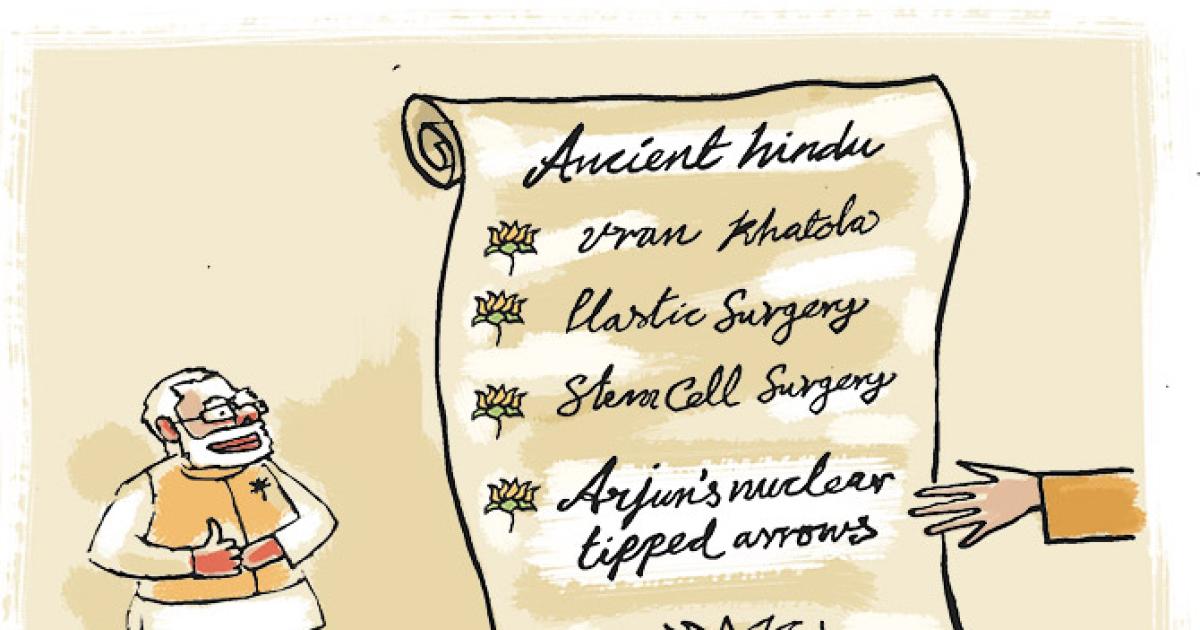 Ancient hindu
vran Khatola
Plastic Surgery
Stem Cell Surgery
Arjun's nuclear
tipped arrows